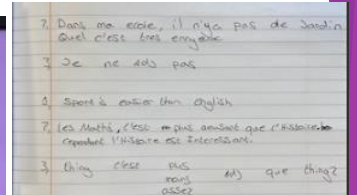 ?, Dans ma ecole, il n'ya pas de Jardin
Quel c'est tres
?, Je ne adj pas
2, Sport is easier than english
?, les Maths, c'est plus amusant que l'Histoire.
cependant l'Histoire est Interessant.
3, thing c'est plus adj que thing2
moins
assez